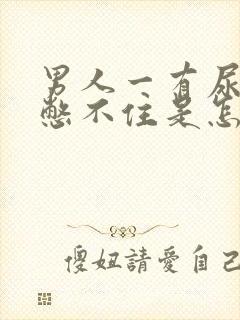 男人一有尿
憋不住是怎
傻妞請愛自己